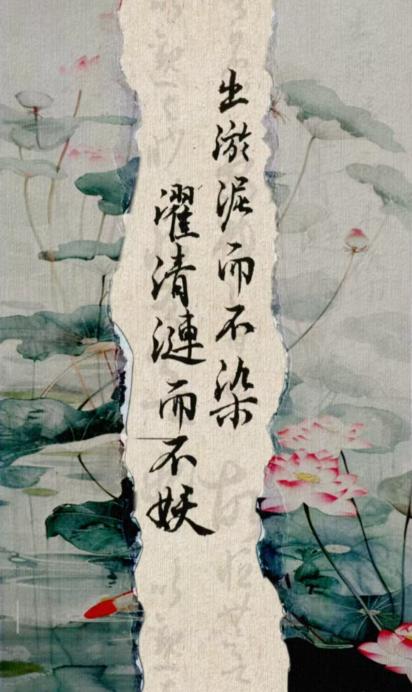 出淤泥而不染
濯清涟而不妖